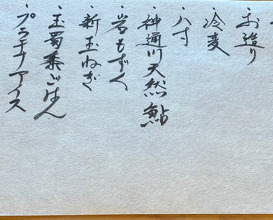 ・お造り
・冷麦
・八寸
・神通川天然鮎
・岩もずく
・新玉ねぎ
・玉蜀黍ごはん
・プラチナアイス